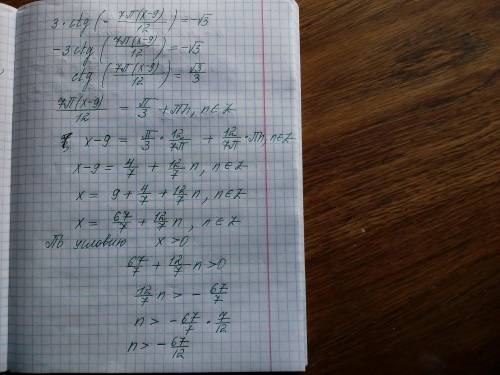 3 · ctg (- 7π(x-9)/12) = -√3
-3ctg (7π(x-9)/12) = -√3
ctg (7π(x-9)/12) = √3/3
7π(x-9)/12 = π/3 + πn, n∈Z
x-9 = π/3 · 12/7π + 12/7π · πn, n∈Z
x-9 = 4/7 + 12/7 n, n∈Z
x = 9 + 4/7 + 12/7 n, n∈Z
x = 67/7 + 12/7 n, n∈Z
По условию x>0
67/7 + 12/7 n >0
12/7 n > - 67/7
n > - 67/7 · 7/12
n > - 67/12